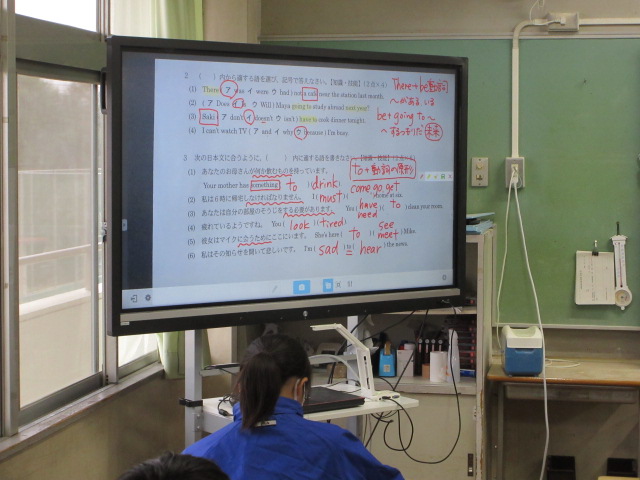 2 ( )内から適する語を選び、記号で答えなさい。【知識・技能】(2点×4)
(1) There ( ア was イ were ウ bad ) not a cab near the station last month.
(2) ( ア Does ウ Will ) Maya going to study abroad next year?
(3) Saki ( ア don't イ doesn't ウ isn't ) have to cook dinner tonight.
(4) I can't watch TV ( ア and イ why ウ because ) I'm busy.
There + be動詞
〜がある いる
be + going to 〜
未来
3 次の日本文に合うように、( )内に適する語を書きなさい。
to + 動詞の原形
(1) あなたのお母さんが何か飲むものを持っています。
Your mother has something to ( drink )
come go get
(2) 私は6時に帰宅しなければなりません。 I ( must ) home at six.
(3) あなたは自分の部屋のそうじをする必要があります。 You ( have need ) ( to ) clean your room.
(4) 疲れているようですね。 You ( look ) ( tired )
(5) 彼女はマイクに会うためにここにいます。 She's here ( to ) ( see meet ) Mike.
(6) 私はその知らせを聞いて悲しいです。 I'm ( sad ) to ( hear ) the news.